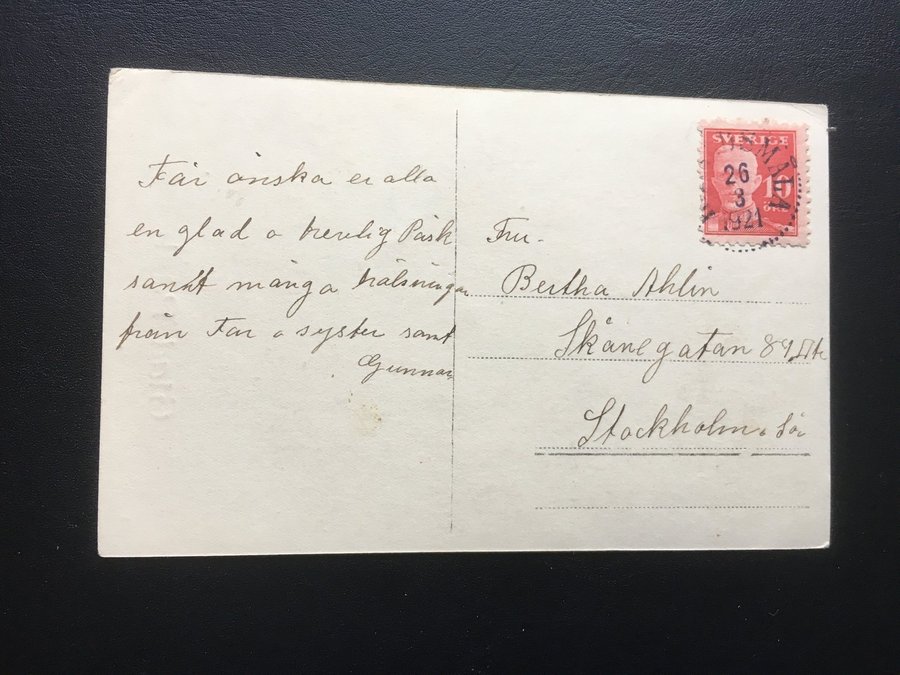 Får önska er alla
en glad o herrlig Påsk
samt många hälsningar
från Far o syster samt
Gunnar
SVERIGE
10
ÖRE
26
3
1921
Fru.
Bertha Ahlin
Skånegatan 89,
Stockholm. Sö